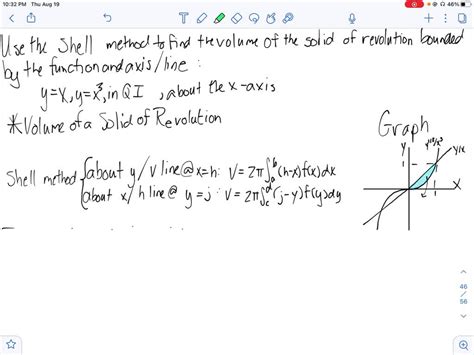 10:32 PM Thu Aug 19
46%
Use the Shell method to find the volume of the solid of revolution bounded
by the function and axis/line:
y=x, y=x³, in QI, about the x-axis
*Volume of a Solid of Revolution
Graph
Shell method {about y/v line @ x=h: V=2π∫ₐᵇ(h-x)f(x)dx
{about x/h line @ y=j: V=2π∫꜀ᵈ(j-y)f(y)dy
y
y=x
1
x
1
46
56